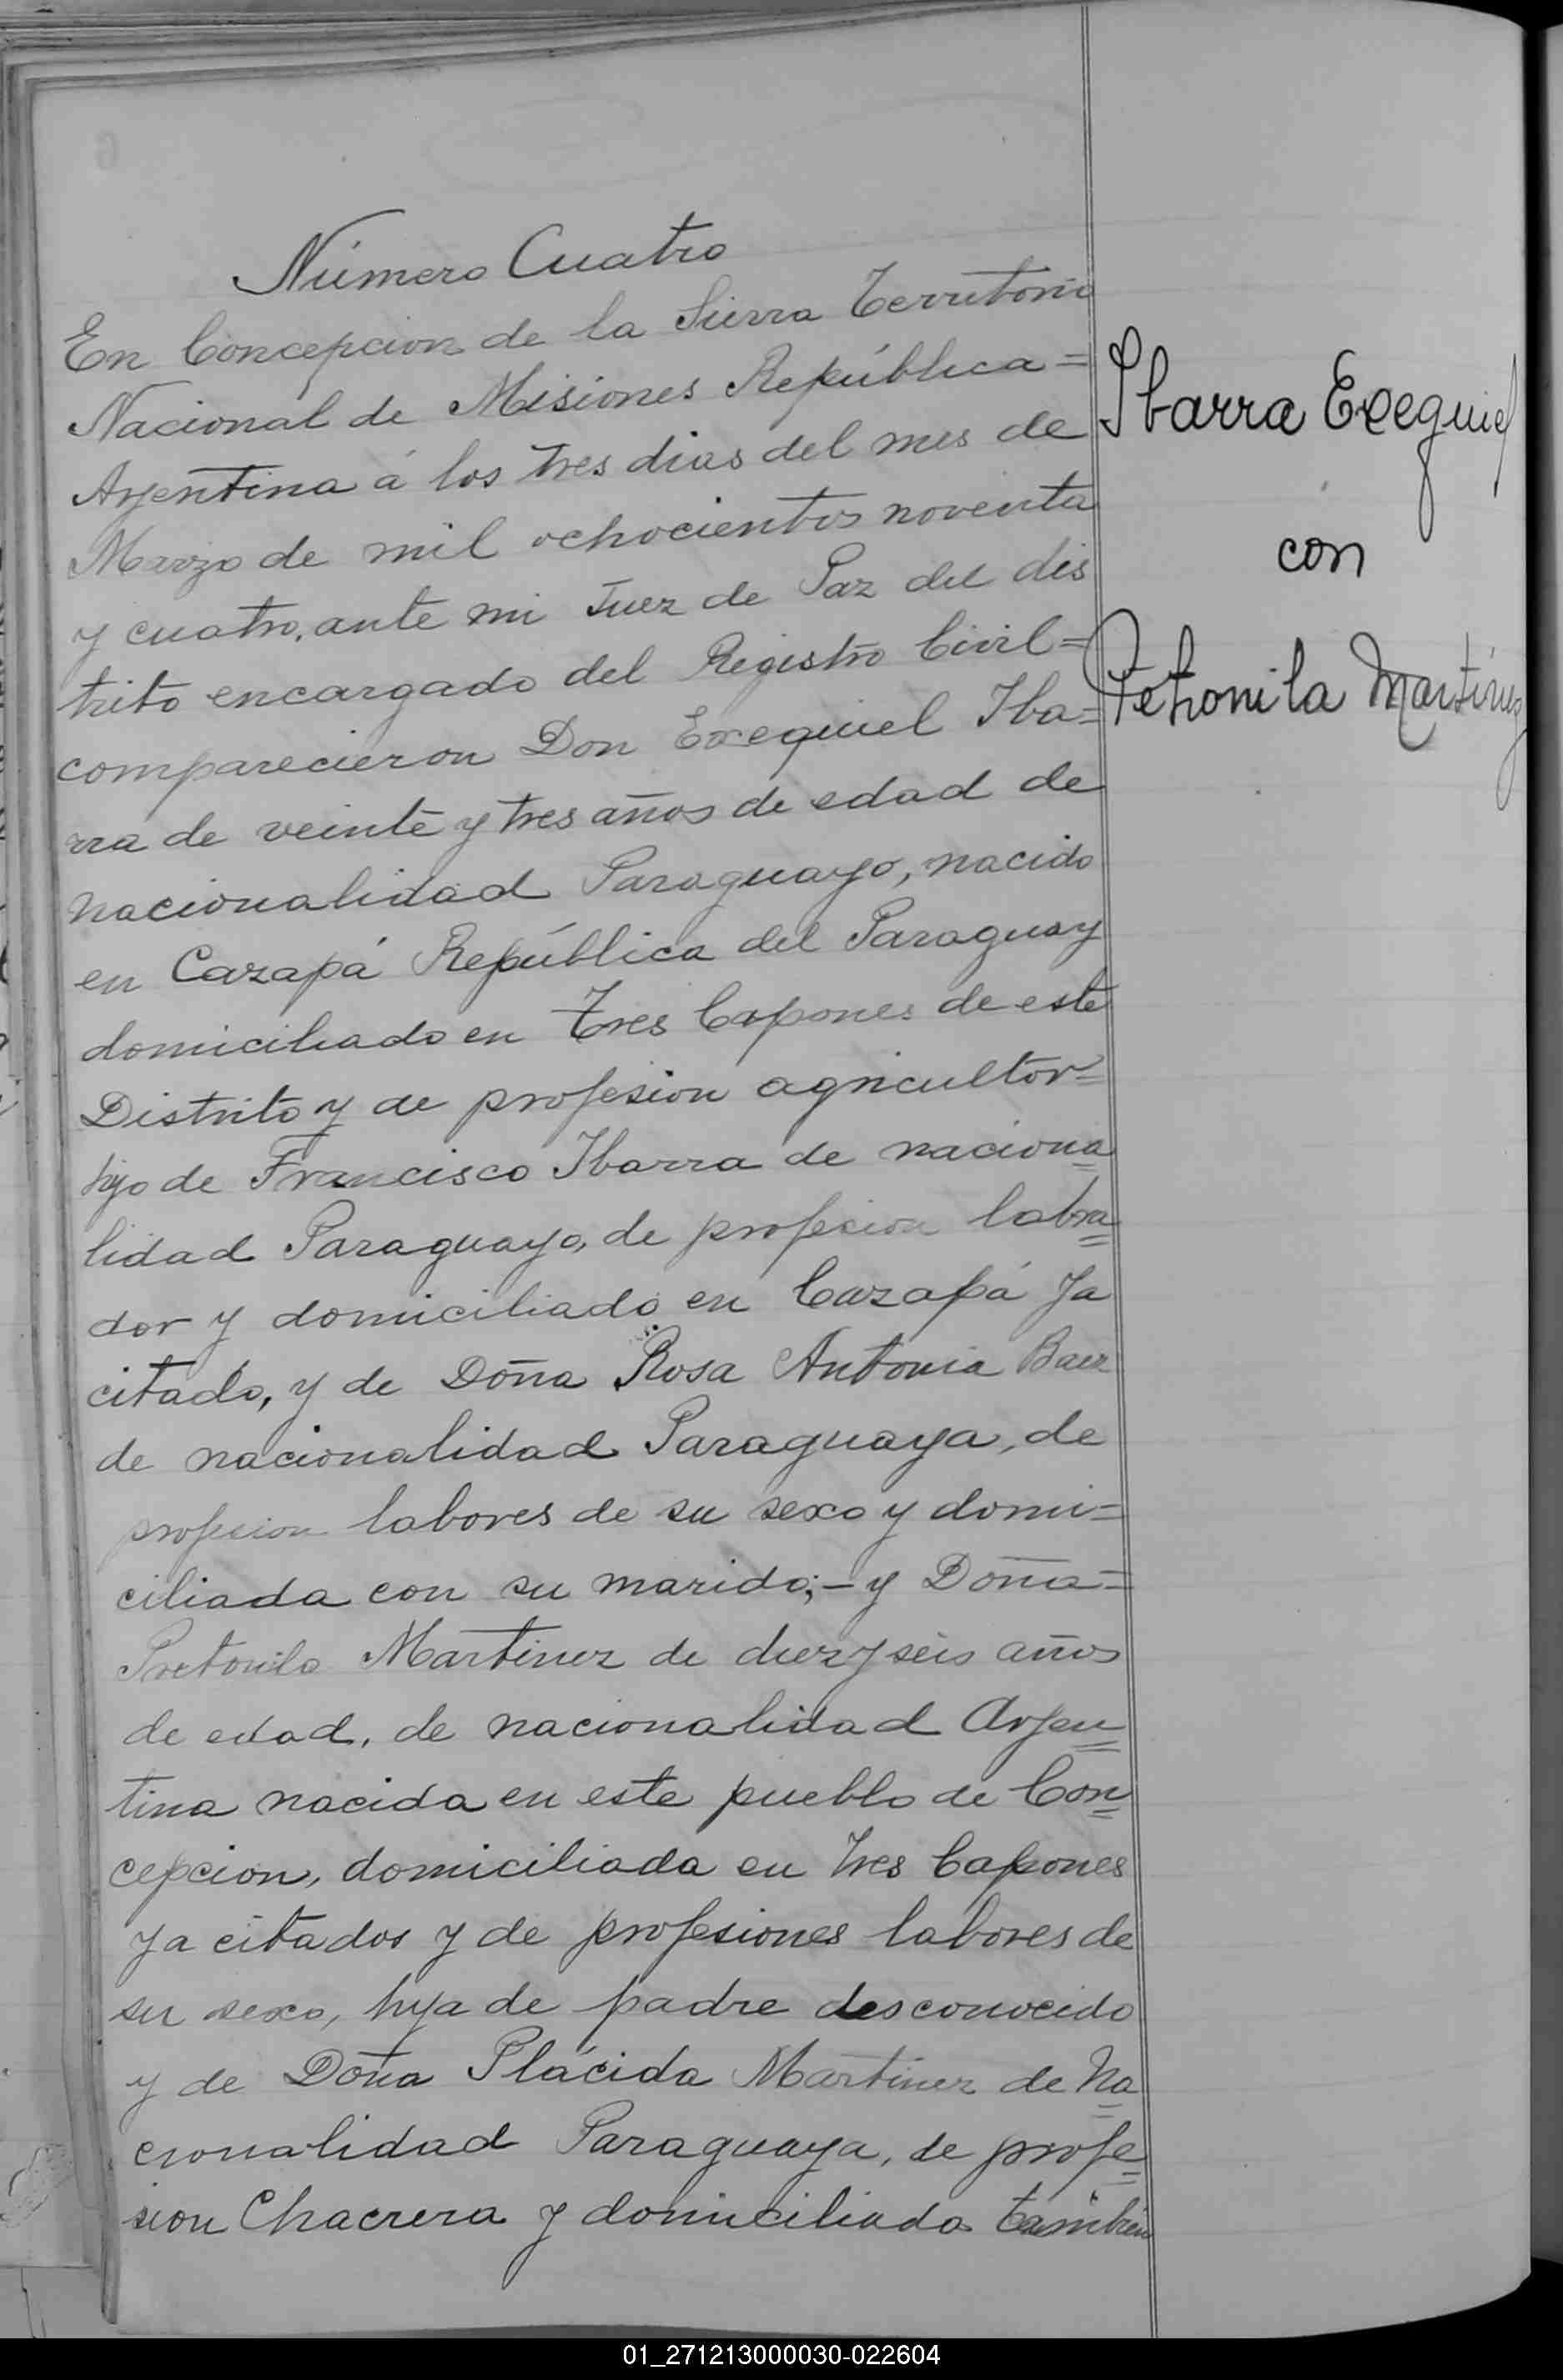 Número Cuatro
En Concepcion de la Sierra Territorio
Nacional de Misiones República=
Argentina á los tres dias del mes de
Marzo de mil ochocientos noventa
y cuatro, ante mi Juez de Paz del dis
trito encargado del Registro Civil=
comparecieron Don Exequiel Iba=
rra de veinte y tres años de edad de
nacionalidad Paraguayo, nacido
en Cazapá República del Paraguay
domiciliado en Tres Capones de este
Distrito y de profesion agricultor=
hijo de Francisco Ibarra de naciona=
lidad Paraguayo, de profesion labra=
dor y domiciliado en Cazapá ya
citado, y de Doña Rosa Antonia Baez
de nacionalidad Paraguaya, de
profesion labores de su sexo y domi=
ciliada con su marido;- y Doña=
Martinez de diez y seis años
de edad, de nacionalidad Argen=
tina nacida en este pueblo de Con=
cepcion, domiciliada en Tres Capones
ya citados y de profesiones labores de
su sexo, hija de padre desconocido
y de Doña Plácida Martinez de Na=
cionalidad Paraguaya, de profe=
sion Chacrera y domiciliada tambien
Ibarra Exequiel
con
Petronila Martínez
01_271213000030-022604